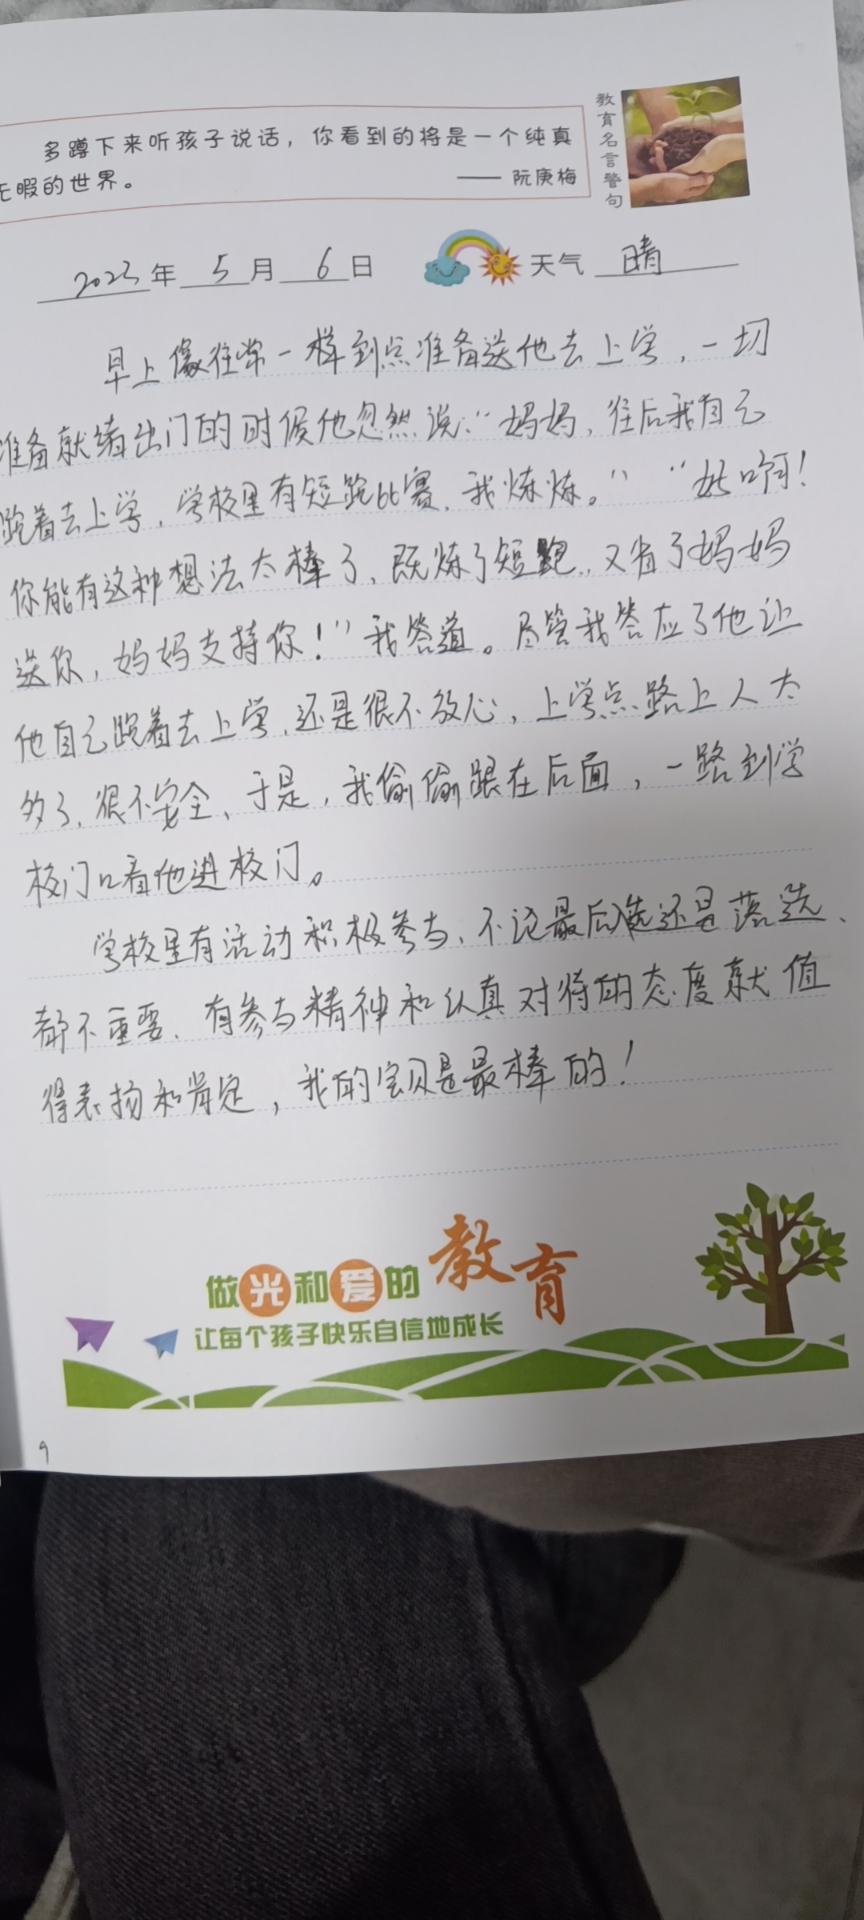 教育名言警句
多蹲下来听孩子说话，你看到的将是一个纯真
无暇的世界。 —— 阮庚梅
2023年 5月 6日 天气 晴
早上像往常一样到点准备送他去上学，一切
准备就绪出门的时候他忽然说：“妈妈，往后我自己
跑着去上学，学校里有短跑比赛，我炼炼。”“好啊！
你能有这种想法太棒了，既炼了短跑，又省了妈妈
送你，妈妈支持你！”我答道。尽管我答应了他让
他自己跑着去上学，还是很不放心，上学点路上人太
多了，很不安全，于是，我偷偷跟在后面，一路到学
校门口看他进校门。
学校里有活动积极参与，不论最后入选还是落选，
都不重要，有参与精神和认真对待的态度就值
得表扬和肯定，我的宝贝是最棒的！
做光和爱的教育
让每个孩子快乐自信地成长
9